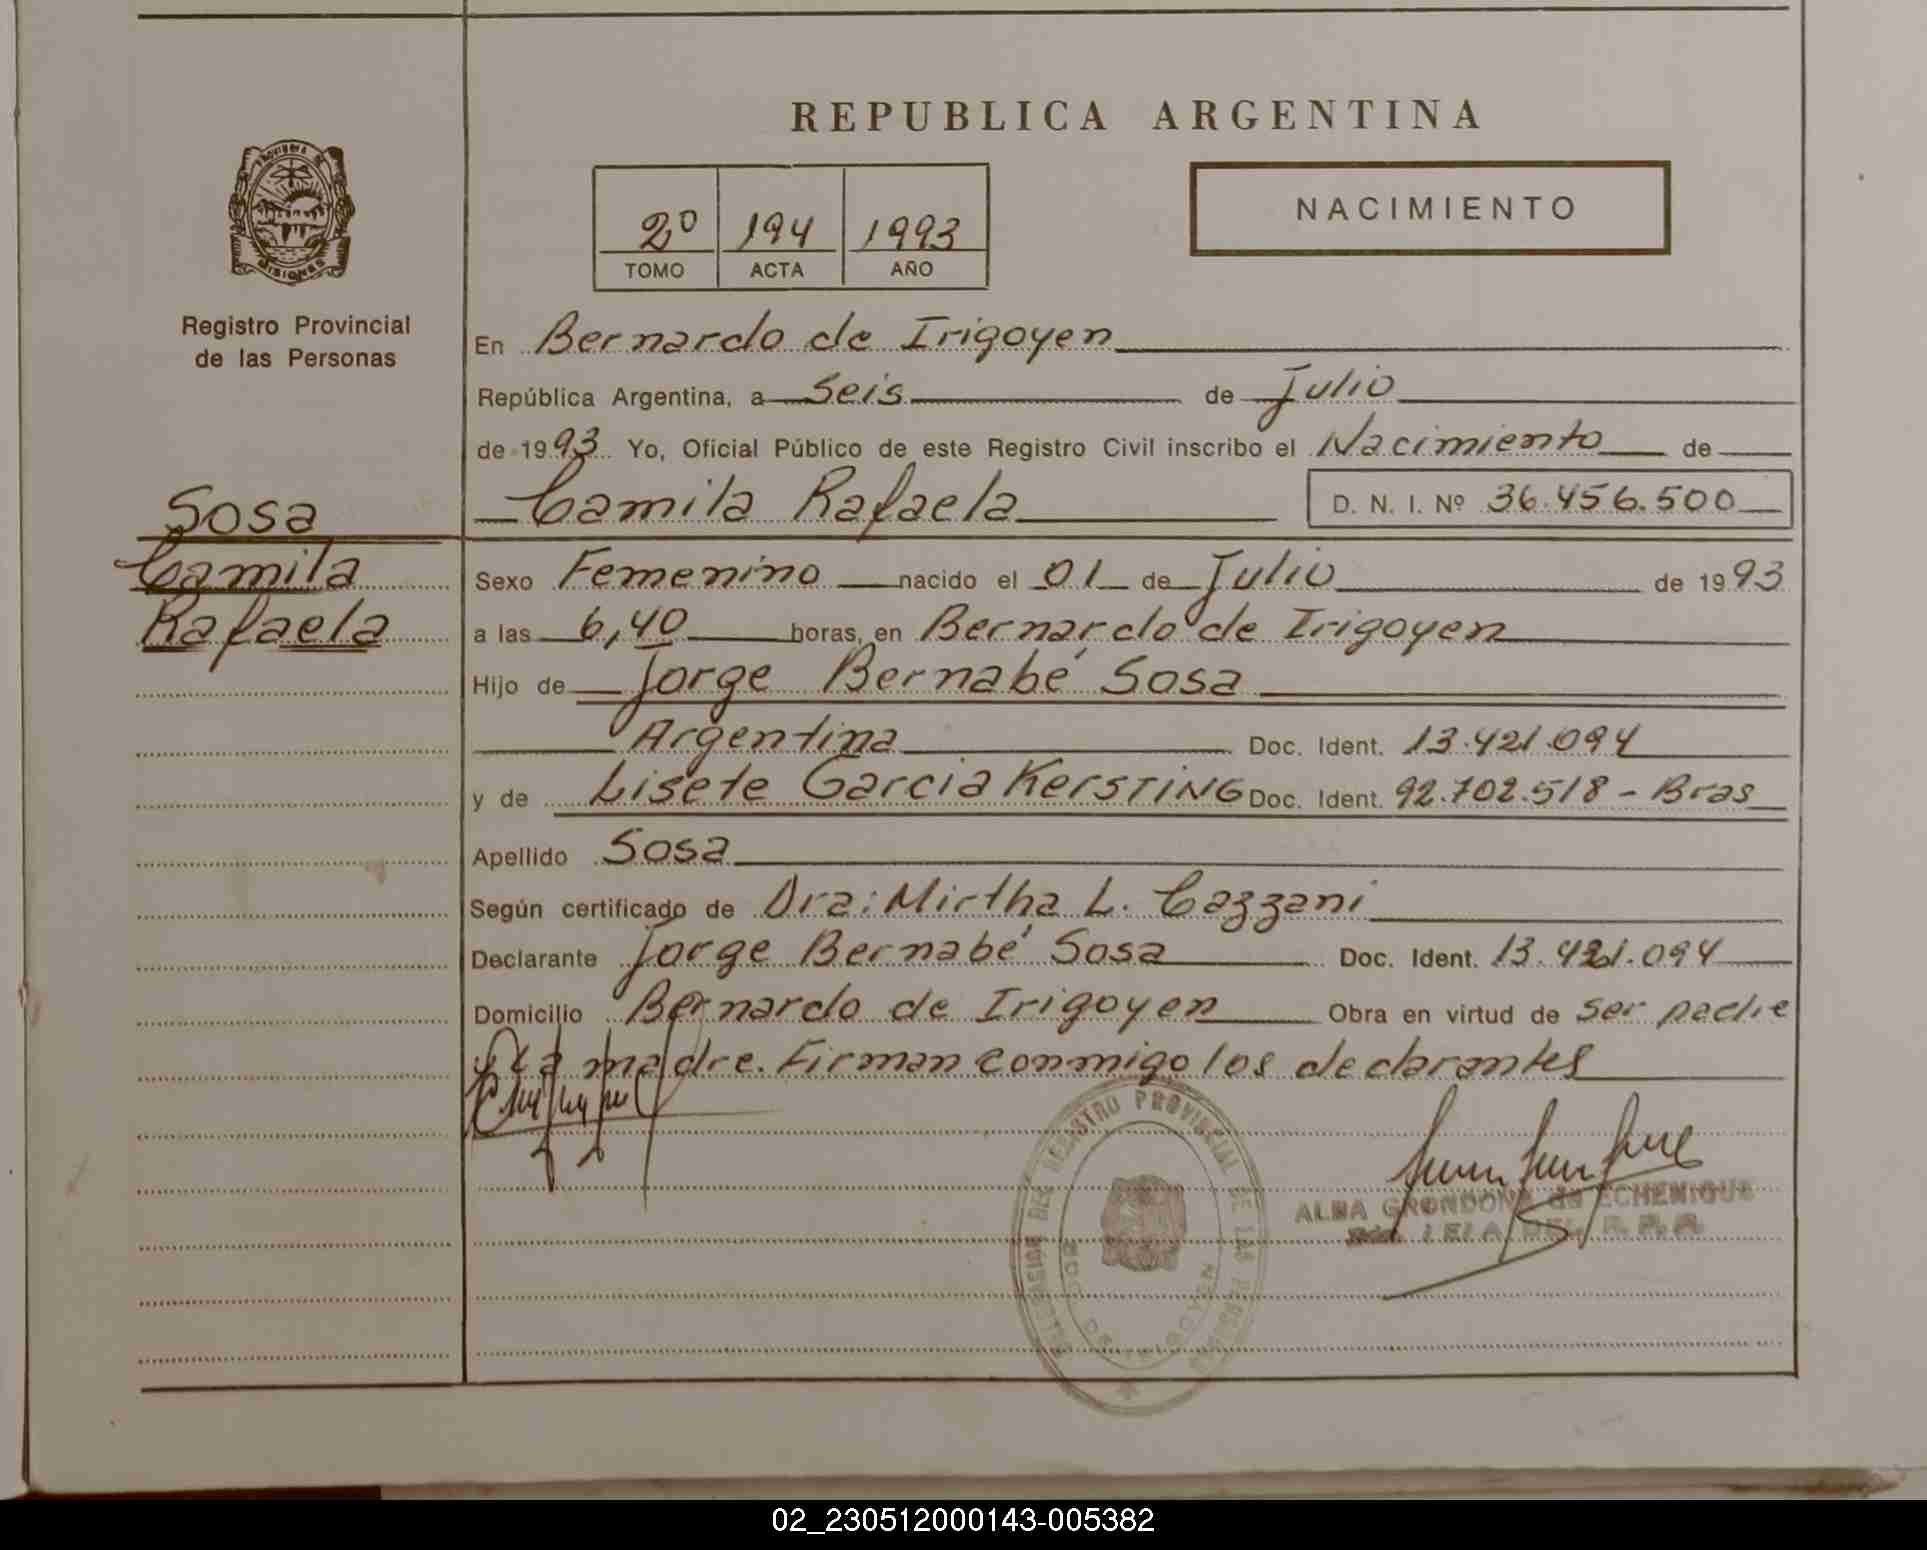 REPUBLICA ARGENTINA
PROVINCIA DE
MISIONES
Registro Provincial
de las Personas
2º 194 1993
TOMO ACTA AÑO
NACIMIENTO
En Bernardo de Irigoyen
República Argentina, a Seis de Julio
de 1993 Yo, Oficial Público de este Registro Civil inscribo el Nacimiento de
Camila Rafaela D. N. I. Nº 36.456.500
Sosa
Camila
Rafaela
Sexo Femenino nacido el 01 de Julio de 1993
a las 6,40 horas, en Bernardo de Irigoyen
Hijo de Jorge Bernabé Sosa
Argentina Doc. Ident. 13.421.094
y de Lisete Garcia KersTiNG Doc. Ident. 92.702.518 - Bras
Apellido Sosa
Según certificado de Dra: Mirtha L. Cazzani
Declarante Jorge Bernabé Sosa Doc. Ident. 13.421.094
Domicilio Bernardo de Irigoyen Obra en virtud de ser padre
y la madre. Firman conmigo los declarantes
REGISTRO PROVINCIAL DE LAS PERSONAS
DE IRIGOYEN
ALBA GRONDONA de ECHENIQUE
DEL R. P. P.
02_230512000143-005382